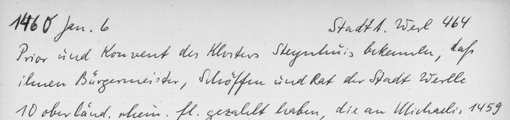 1460 Jan. 6 Stadt A. Werl 464
Prior und Konvent des Klosters Steynhuis bekennen, daß
ihnen Bürgermeister, Schöffen und Rat der Stadt Werle
10 oberländ. rhein. fl. gezahlt haben, die an Michaelis 1459